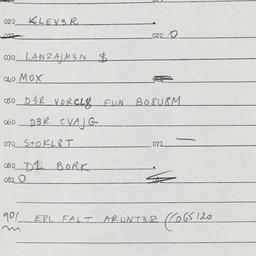 020 KLEV3R
022 O
030 LANZAJM3N $
040 MOX
050 D3R VORCL8 FUN BO8U8M
060 D3R CVAJG
070 STOKL8T 072 —
080 D1 BORK
082 O
901 EPL FALT ARUNT3R